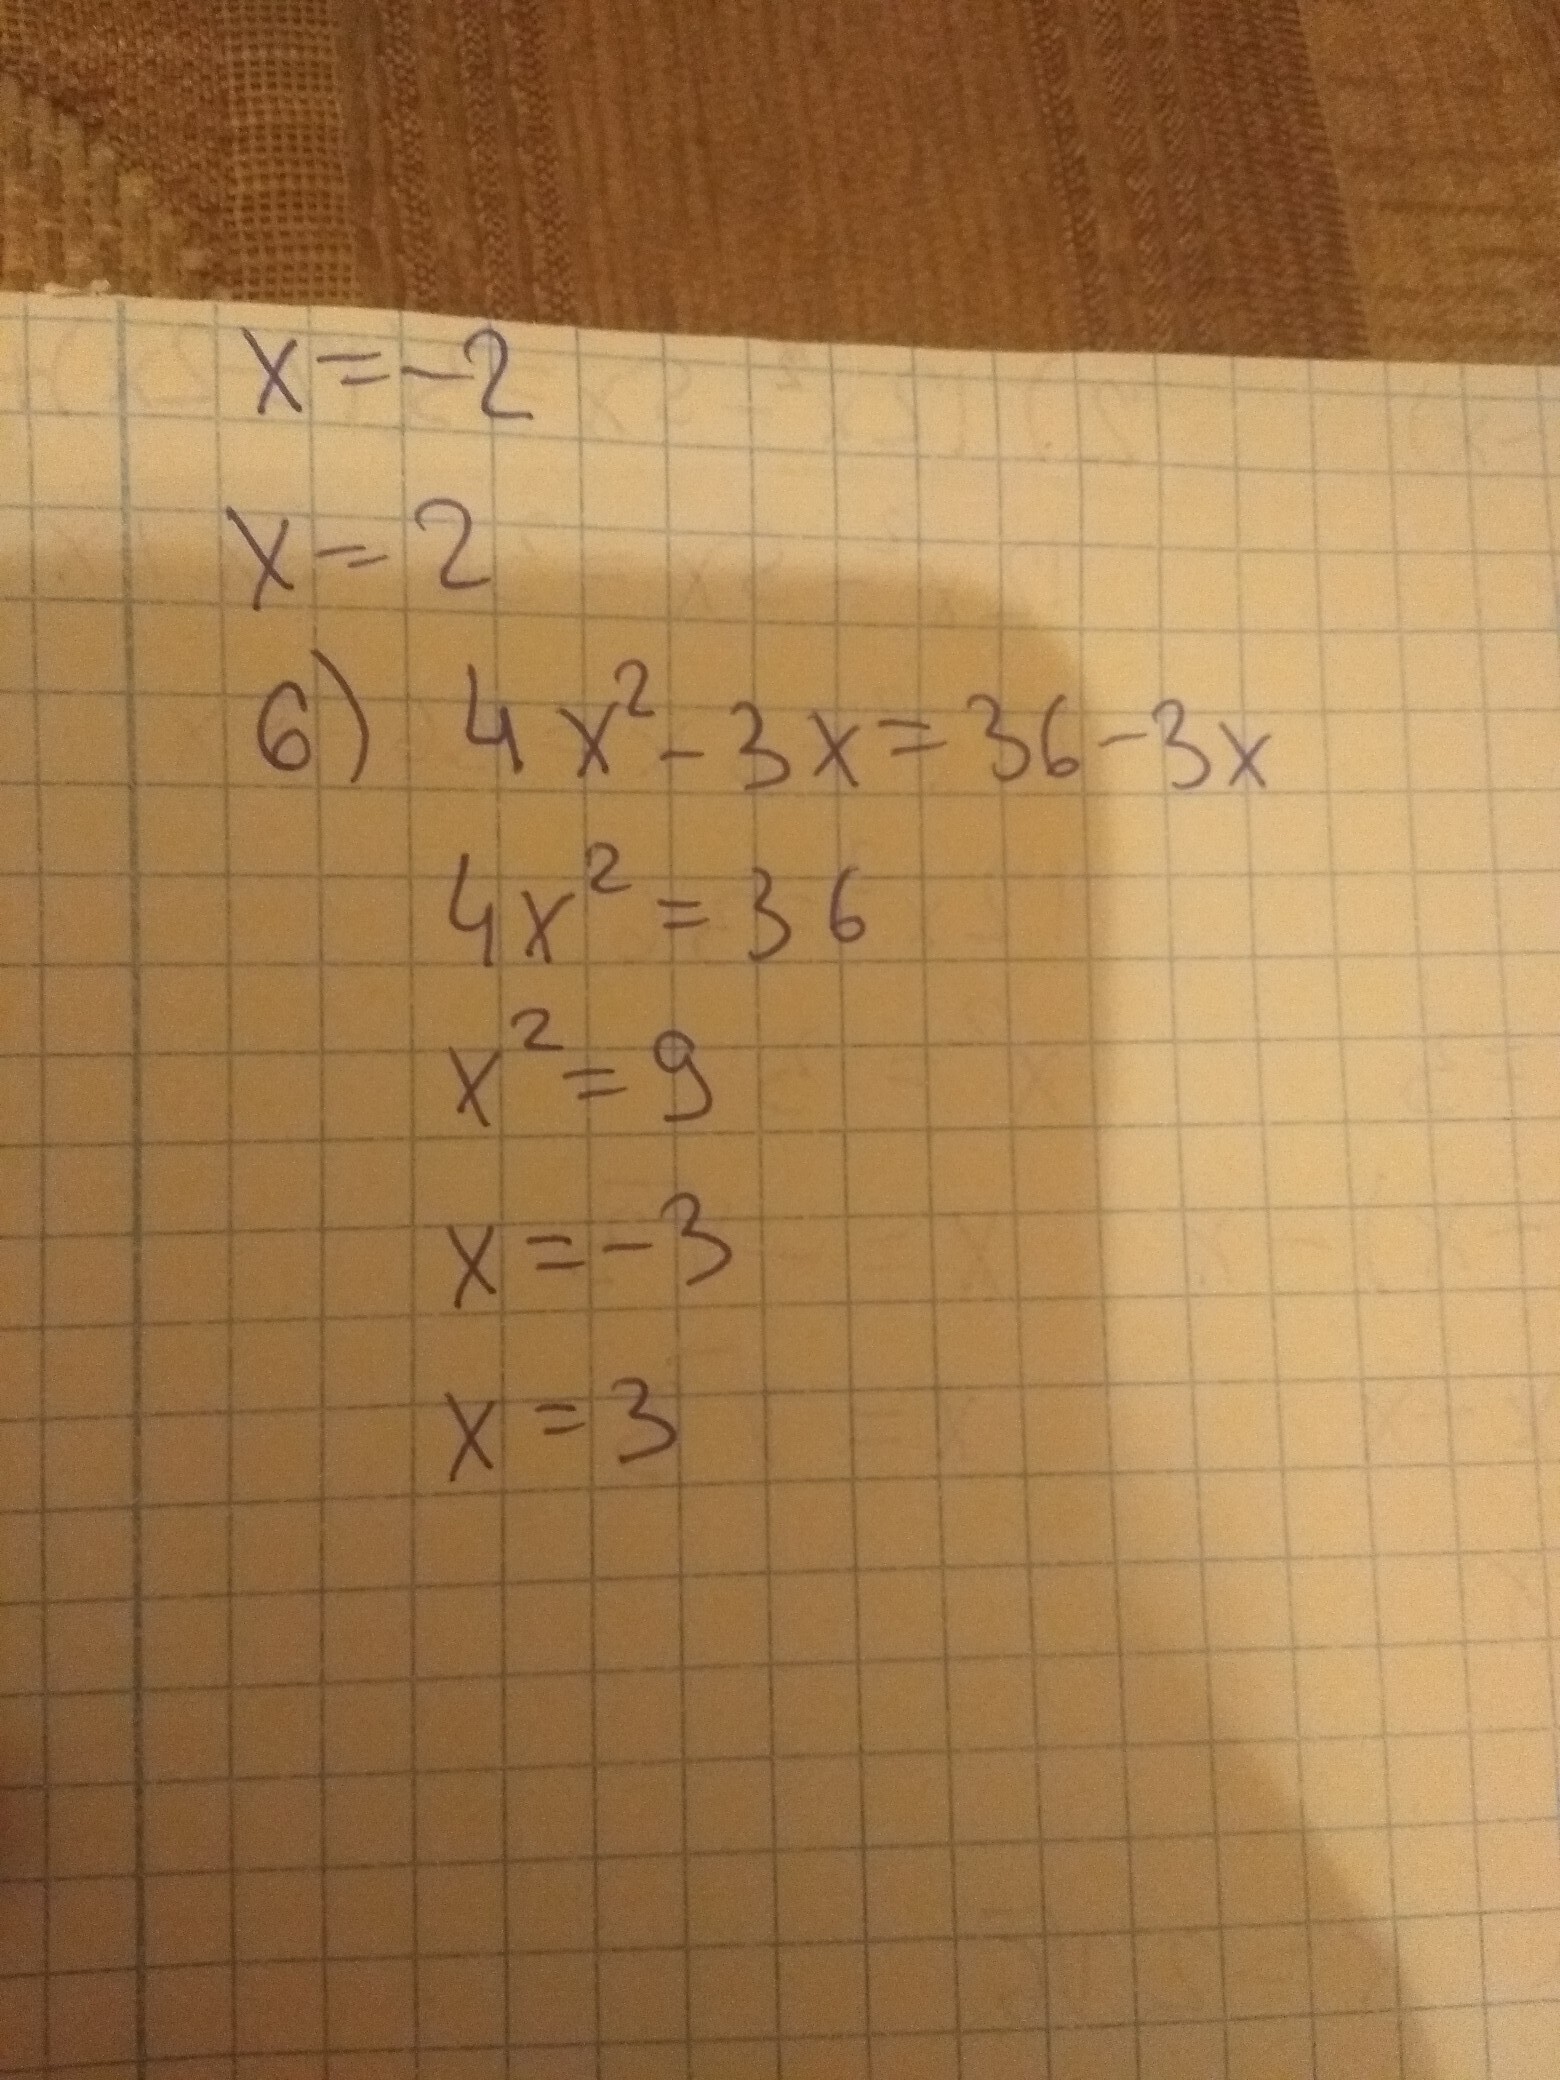 x=-2
x=2
6) 4x²-3x=36-3x
4x²=36
x²=9
x=-3
x=3